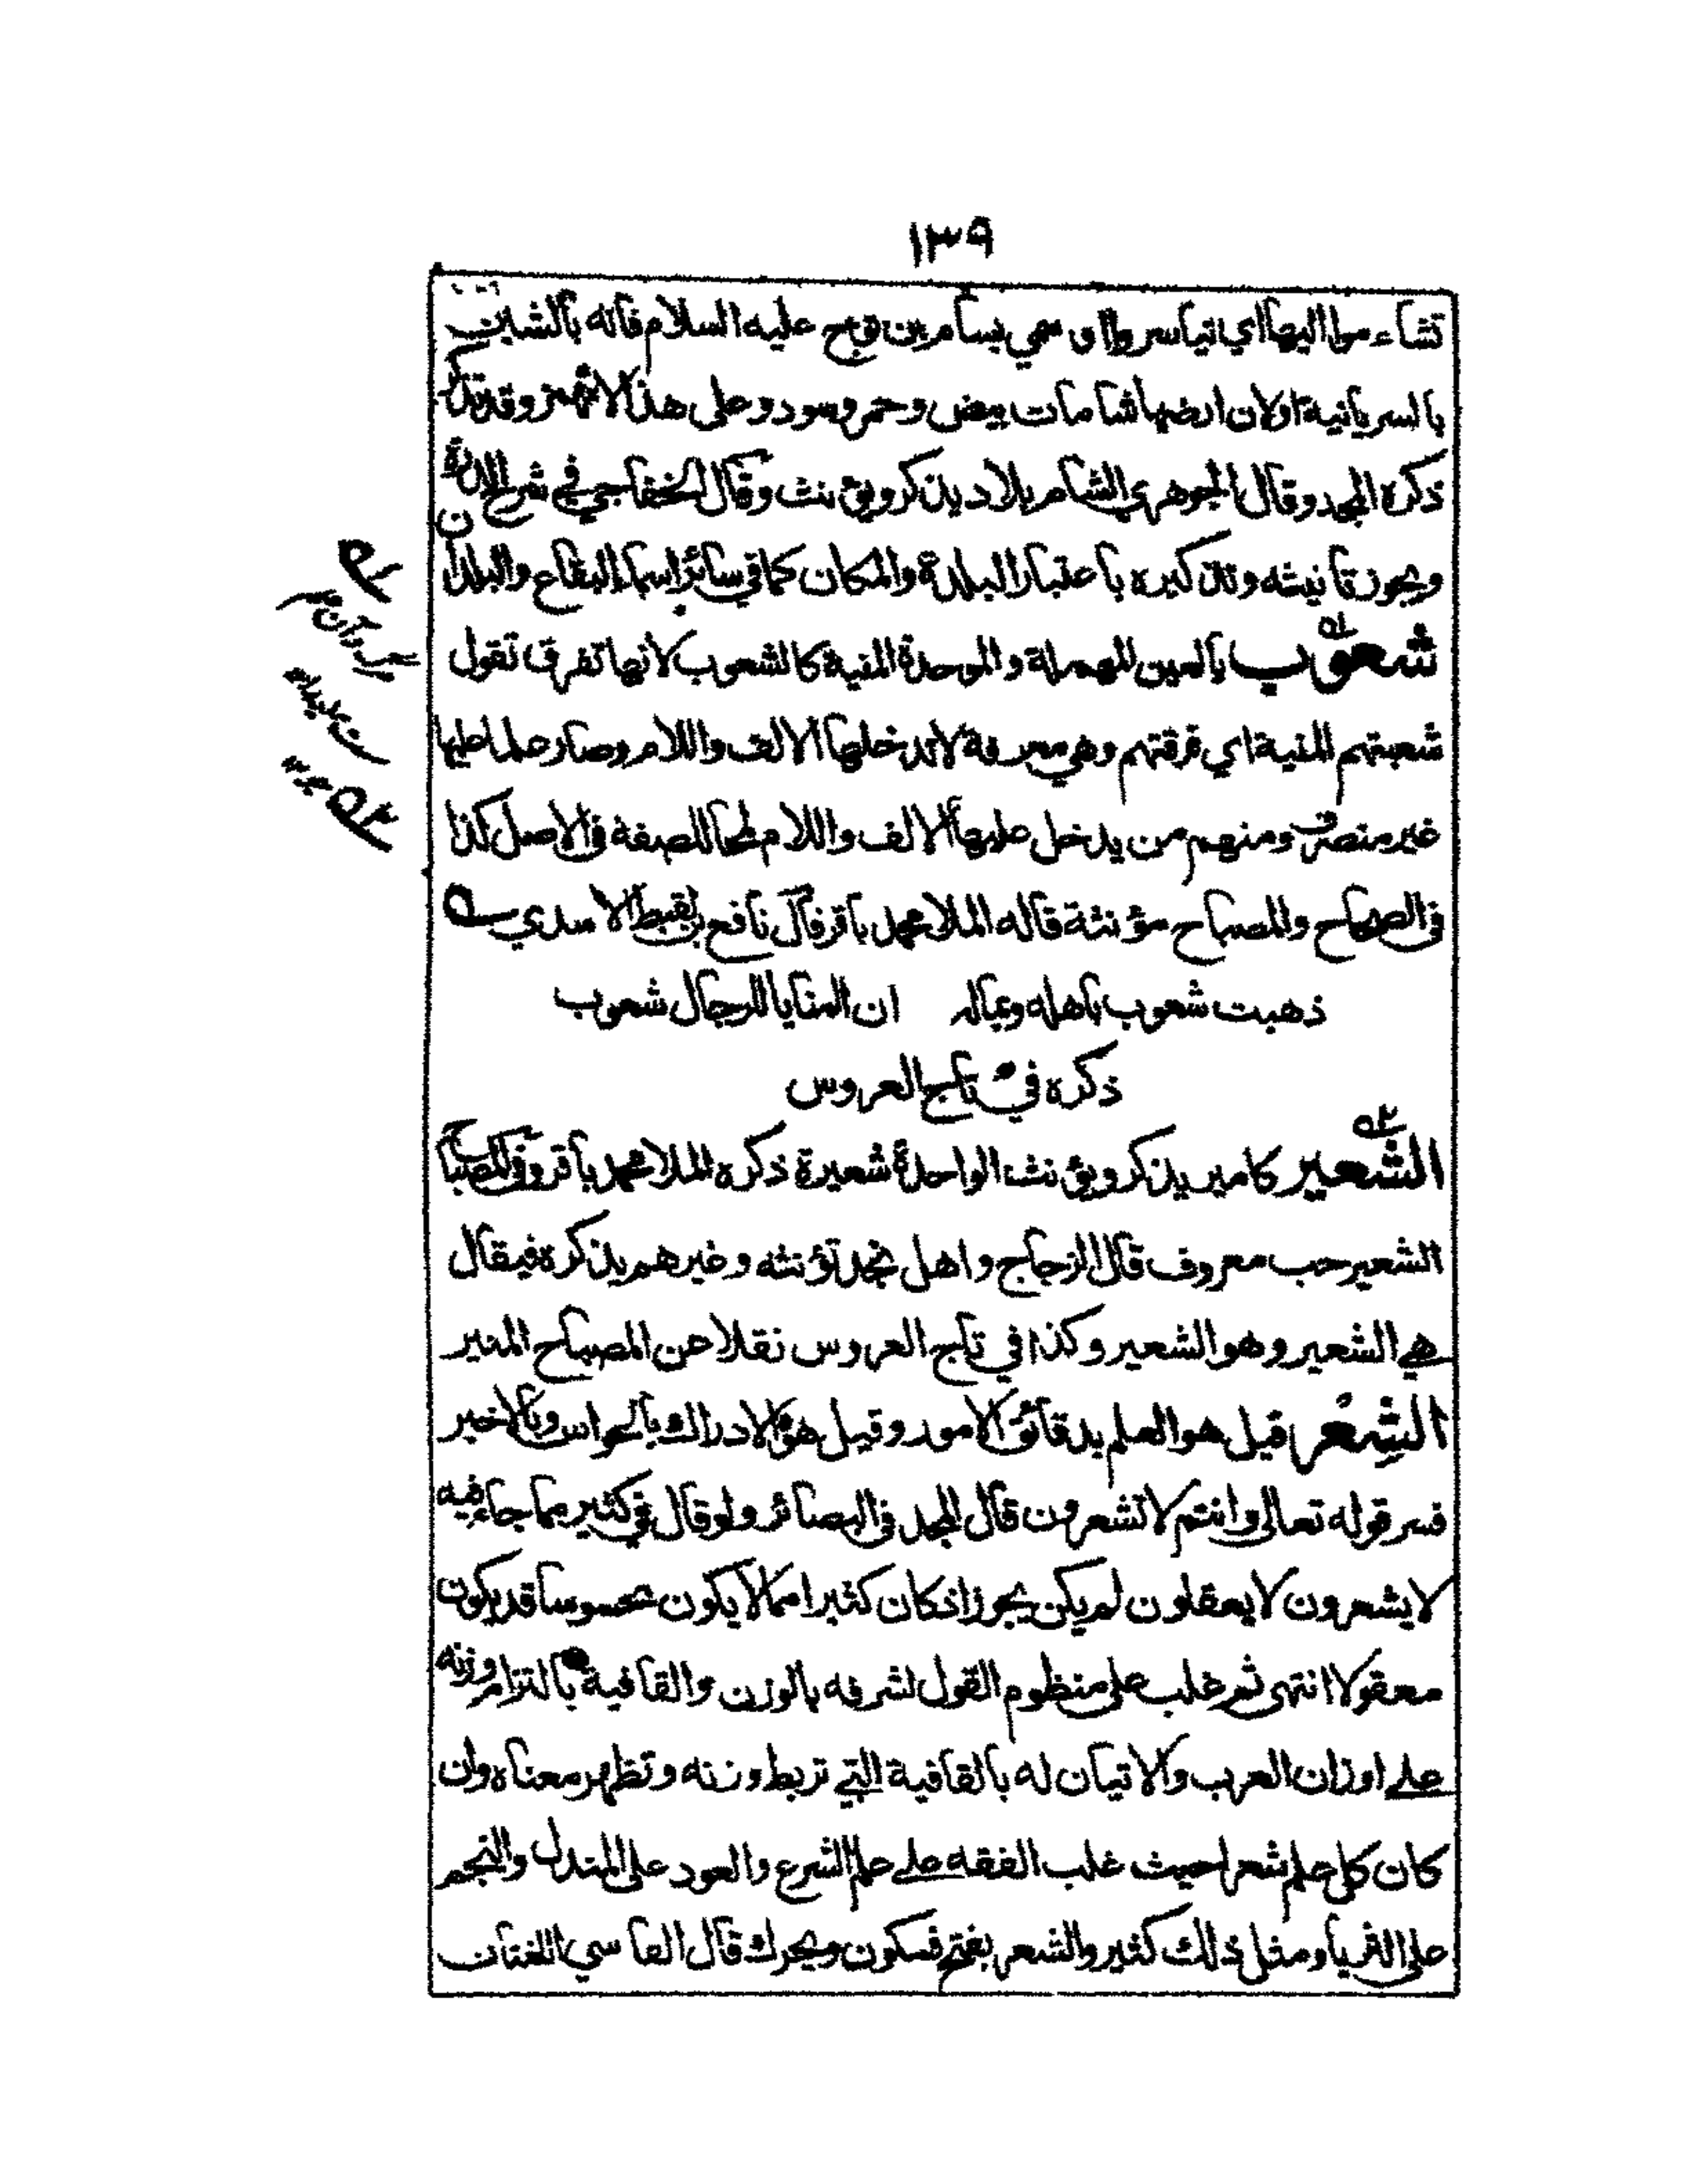 ١٣٩
تشاءموا اليها اي تياسروا او سمي بسام بن نوح عليه السلام فانه بالشين
بالسريانية اولان ارضها شامات بيض وحمر وسود وعلى هذا لا تهمز وقد تذكر
ذكره المجد وقال الجوهري الشام بلاد يذكر ويؤنث وقال الخفاجي في شرح الدرة
ويجوز تانيثه وتذكيره باعتبار البلدة والمكان كما في سائر اسماء البقاع والبلدان
شعوب بالعين المهملة والموحدة المنية كالشعوب لانها تفرق تقول
شعبتهم المنية اي فرقتهم وهي معرفة لا تدخلها الالف واللام وصار علما عليها
غير منصرف ومنهم من يدخل عليها الالف واللام لمحا للصفة في الاصل كذا
في الصحاح والمصباح مؤنثة قاله الملا محمد باقر قال نافع بن لقيط الاسدي
ذهبت شعوب باهله وبماله ان المنايا للرجال شعوب
ذكره في تاج العروس
الشعير كامير يذكر ويؤنث الواحدة شعيرة ذكره الملا محمد باقر وفي المصباح
الشعير حب معروف قال الزجاج واهل نجد تؤنثه وغيرهم يذكره فيقال
هي الشعير وهو الشعير وكذا في تاج العروس نقلا عن المصباح المنير
الشِعْر قيل هو العلم بدقائق الامور وقيل هو الادراك بالحواس وبالاخير
فسر قوله تعالى وانتم لا تشعرون قال المجد في البصائر ولو قال في كثير مما جاء فيه
لا يشعرون لا يعقلون لم يكن يجوز اذ كان كثيرا مما لا يكون محسوسا قد يكون
معقولا انتهى ثم غلب على منظوم القول لشرفه بالوزن والقافية بالتزام وزنه
على اوزان العرب والاتيان له بالقافية التي تربط وزنه وتظهر معناه وان
كان كل علم شعرا حيث غلب الفقه على علم الشرع والعود على المندل والنجم
على الثريا ومثل ذلك كثير والشعر بفتح فسكون ويحرك قال الفاسي اللغتان